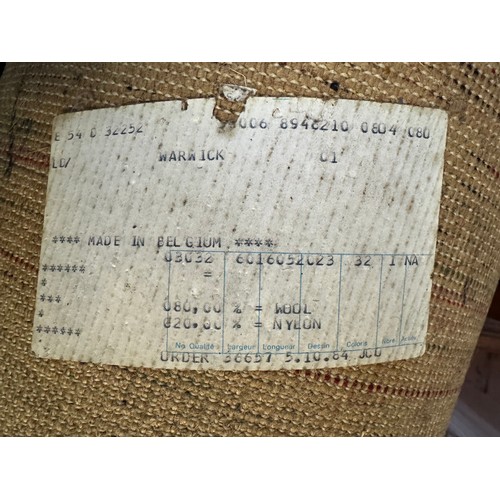 E 54 0 32252 006 8946210 0804 080
LD/ WARWICK 01
**** MADE IN BELGIUM ****
03032 6016052023 32 1 NA
****** =
*
*** 080,00 % = WOOL
* 020.00 % = NYLON
****** No Qualité Largeur Longueur Dessin Coloris
ORDER 36657 5.10.84 JCD